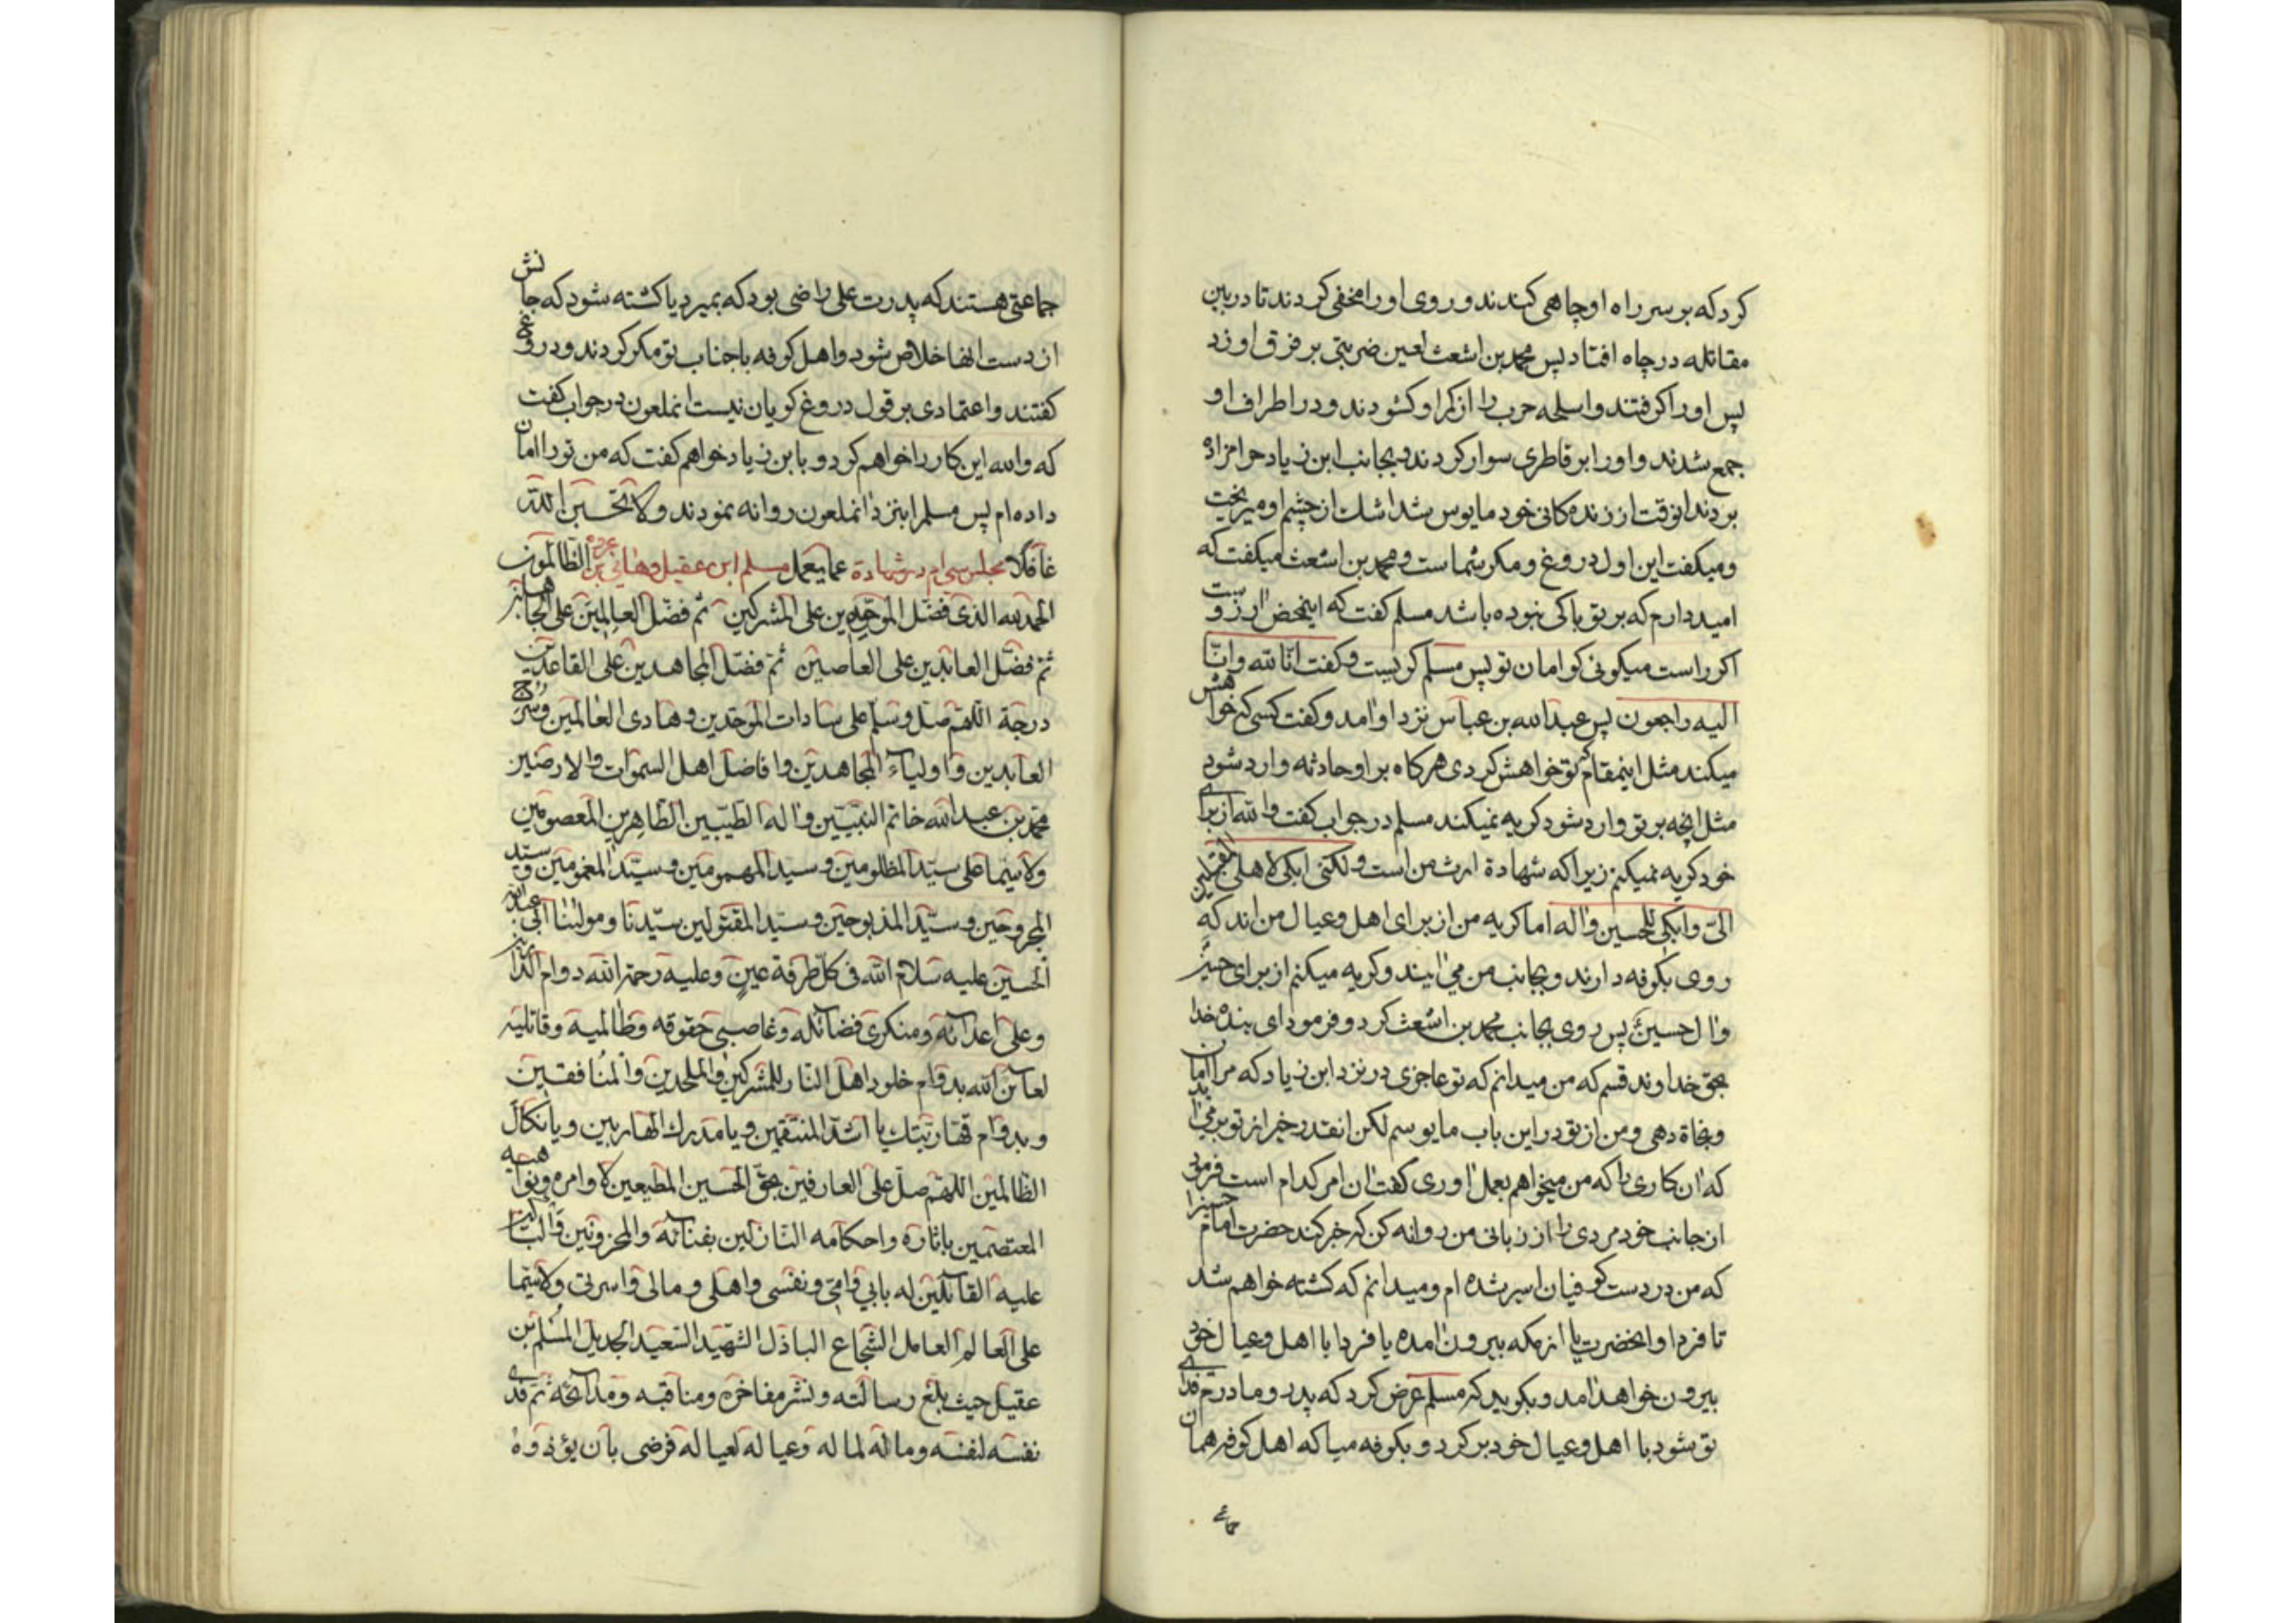 کرد که بر سر راه او چاهی کندند و روی او را مخفی کردند تا در بین
مقاتله در چاه افتاد پس محمد بن اشعث لعین ضربتی بر فرق او زد
پس او را کرفتند و اسلحه حرب را از کمر او کشودند و در اطراف او
جمع شدند و او را بر قاطری سوار کردند و بجانب ابن زیاد حرامزاده
بردند انوقت از زنده کانی خود مایوس شد اشک از چشم او میریخت
و میکفت این اول دروغ و مکر شماست و محمد بن اشعث میکفت که
امیدوارم که بر تو باکی نبوده باشد مسلم کفت که اینمحض ارزوست
اکر راست میکوئی کو امان تو پس مسلم کریست و کفت انّا لله و انّا
الیه راجعون پس عبدالله بن عباس نزد او امد و کفت کسی که خواهش
میکند مثل اینمقام که تو خواهش کردی هرکاه بر او حادثه وارد شود
مثل انچه بر تو وارد شود کریه نمیکند مسلم در جواب کفت والله از برای
خود کریه نمیکنم زیرا که شهادة ارث من است و لکنی ابکی لاهلی المقبلین
الیّ و ابکی للحسین و اله اما کریه من از برای اهل و عیال من اند که
روی بکوفه دارند و بجانب من می ایند و کریه میکنم از برای حسین
و ال حسین پس روی بجانب محمد بن اشعث کرد و فرمود ای بنده خدا
بحق خداوند قسم که من میدانم که تو عاجزی در نزد ابن زیاد که مرا امان
و نجاة دهی و من از تو در این باب مایوسم لکن انقدر خیر از تو بر می اید
که ان کاری را که من میخواهم بعمل اوری کفت ان امر کدام است فرمود
از جانب خود مردی را از زبانی من روانه کن که خبر کند حضرت امام حسین را
که من در دست کوفیان اسیر شده ام و میدانم که کشته خواهم شد
تا فردا و انحضرت یا از مکه بیرون امده یا فردا با اهل و عیال خود
بیرون خواهد امد و بکوید که مسلم عرض کرد که پدر و مادرم فدای
تو شود با اهل و عیال خود برکرد و بکوفه میا که اهل کوفه همان
جماعتی هستند که پدرت علی راضی بود که بمیرد یا کشته شود که جانش
از دست انها خلاص شود و اهل کوفه با جناب تو مکر کردند و دروغ
کفتند و اعتمادی بر قول دروغ کویان نیست انملعون در جواب کفت
که والله این کار را خواهم کرد و با ابن زیاد خواهم کفت که من تو را امان
داده ام پس مسلم را بنزد انملعون روانه نمودند و لا تحسبن الله
غافلا مجلس سی ام در شهادة عما یعمل مسلم ابن عقیل و هانی بن عروه الظالمون
الحمد لله الذی فضّل الموحّدین علی المشرکین ثم فضّل العالمین علی الجاهلین
ثمّ فضّل العابدین علی العاصین ثمّ فضّل المجاهدین علی القاعدین
درجة اللّهمّ صلّ و سلّم علی سادات الموحّدین و هادی العالمین و سرج
العابدین و اولیاء المجاهدین و افاضل اهل السموات و الارضین
محمّد بن عبد الله خاتم النبیّین و اله الطیّبین الطّاهرین المعصومین
و لاسیّما علی سیّد المظلومین و سید المهمومین و سیّد المغمومین و سیّد
المجروحین و سیّد المذبوحین و سیّد المقتولین سیّدنا و مولینا ابی عبد الله
الحسین علیه سلام الله فی کلّ طرفة عین و علیه رحمة الله دوام الدّارین
و علی اعدائه و منکری فضائله و غاصبی حقوقه و ظالمیه و قاتلیه
لعائن الله بدوام خلود اهل النّار للمشرکین و الملحدین و المنافقین
و بدوام قهّاریّتک یا اشدّ المنتقمین و یا مدرک الهاربین و یا نکال
الظّالمین اللهمّ صلّ علی العارفین بحقّ الحسین المطیعین لاوامره و نواهیه
المعتصمین باثاره و احکامه النّازلین بفنائه و المحزونین و الباکین
علیه القائلین له بابی و امّی و نفسی و اهلی و مالی و اسرتی و لاسیّما
علی العالم العامل الشّجاع الباذل الشّهید السّعید الجدیل المسلم بن
عقیل حیث بلّغ رسالته و نشر مفاخره و مناقبه و مدائحه ثمّ فدی
نفسه لنفسه و ماله لماله و عیاله لعیاله فرضی بان یؤذوه